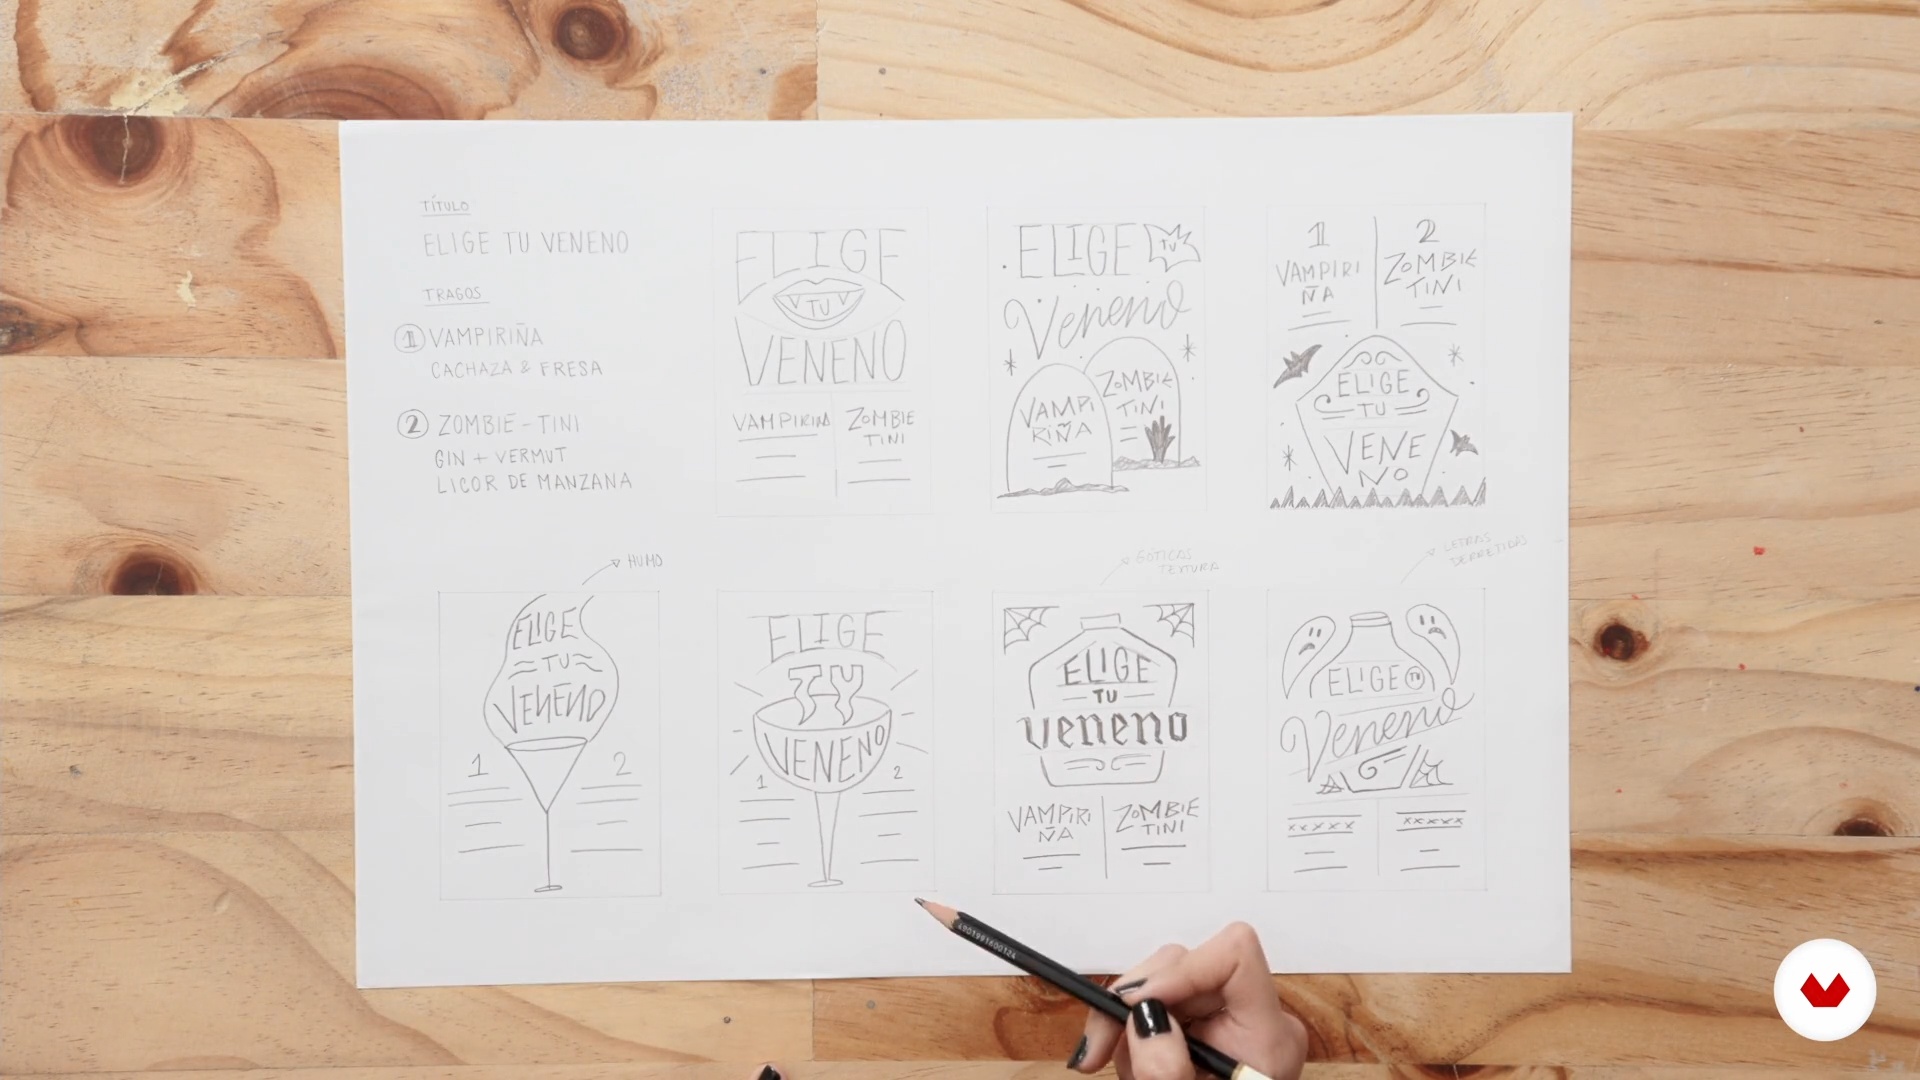 TÍTULO
ELIGE TU VENENO
TRAGOS
1 VAMPIRIÑA
CACHAZA & FRESA
2 ZOMBIE-TINI
GIN + VERMUT
LICOR DE MANZANA
ELIGE
TU
VENENO
VAMPIRIÑA
ZOMBIE
TINI
ELIGE TU
Veneno
VAMPI
RIÑA
ZOMBIE
TINI
1
VAMPIRI
ÑA
2
ZOMBIE
TINI
ELIGE
TU
VENE
NO
HUMO
ELIGE
TU
VENENO
1
2
ELIGE
TU
VENENO
1
2
GÓTICAS
TEXTURA
ELIGE
TU
veneno
VAMPIRI
ÑA
ZOMBIE
TINI
LETRAS
DERRETIDAS
ELIGE TU
Veneno
xxxxx
xxxxx
4901991600124